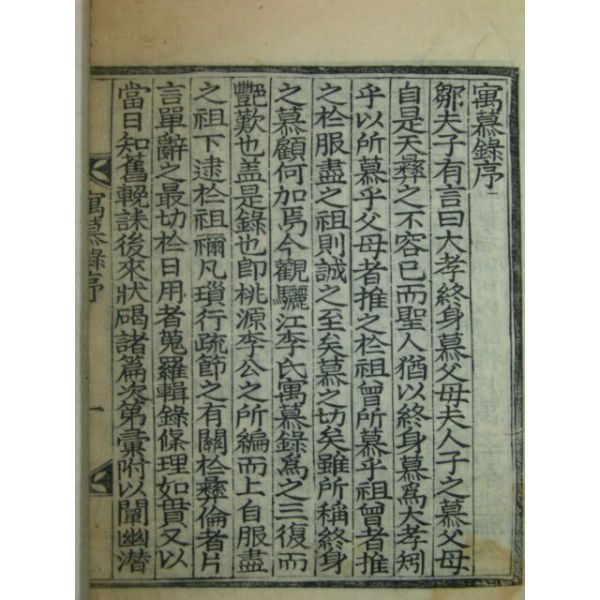 寓慕錄序
鄒夫子有言曰大孝終身慕父母夫人子之慕父母
自是天彝之不容已而聖人猶以終身慕爲大孝矧
乎以所慕乎父母者推之於祖曾所慕乎祖曾者推
之於服盡之祖則誠之至矣慕之切矣雖所稱終身
之慕顧何加焉今觀驪江李氏寓慕錄爲之三復而
艶歎也盖是錄也卽桃源李公之所編而上自服盡
之祖下逮於祖禰凡瑣行疏節之有關於彝倫者片
言單辭之最切於日用者蒐羅輯錄條理如貫又以
當日知舊輓誄後來狀碣諸篇次第彙附以闡幽潜
寓慕錄序
一